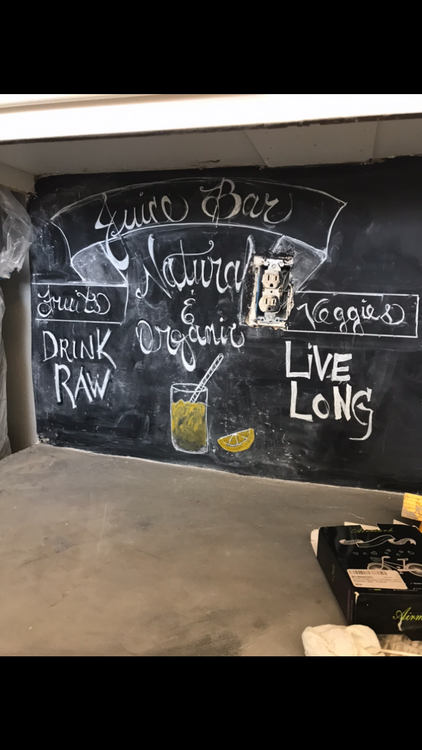 Juice Bar
Natural
&
Organic
Fruits
Veggies
DRINK
RAW
LiVE
LONG